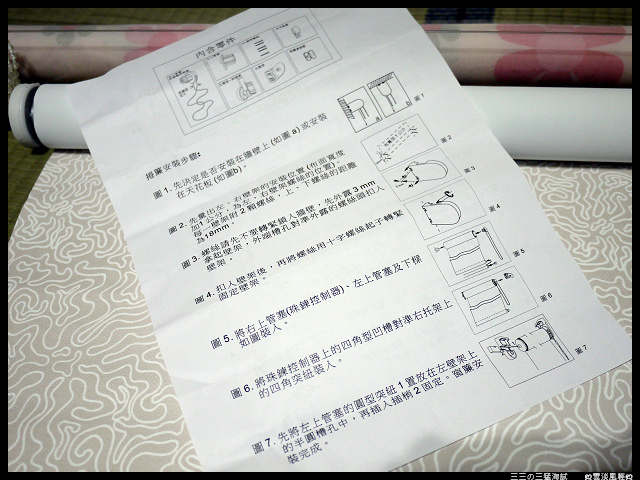 內含零件
捲簾安裝步驟:
圖 1. 先決定是否安裝在牆壁上 (如圖 a) 或安裝
在天花板 (如圖b)。
圖 2. 先量出左、右壁架的安裝位置 (布面寬度
加1公分，為左、右壁架螺絲的位置)。
每一壁架附 2 顆螺絲，上、下螺絲的距離
為18mm。
圖 3. 螺絲請先不要轉緊鎖入牆壁，先外露 3 mm
拿起壁架，外端槽孔對準外露的螺絲頭扣入
壁架。
圖 4. 扣入壁架後，再將螺絲用十字螺絲起子轉緊
固定壁架。
圖 5. 將右上管塞(珠鍊控制器)、左上管塞及下樑
如圖裝入。
圖 6. 將珠鍊控制器上的四角型凹槽對準右托架上
的四角突紐裝入。
圖 7. 先將左上管塞的圓型突紐 1 置放在左壁架上
的半圓槽孔中，再插入插梢 2 固定。窗簾安
裝完成。
a
b
圖 1
圖 2
圖 3
圖 4
圖 5
圖 6
圖 7
三三の三猛海賊
@雲淡風輕@